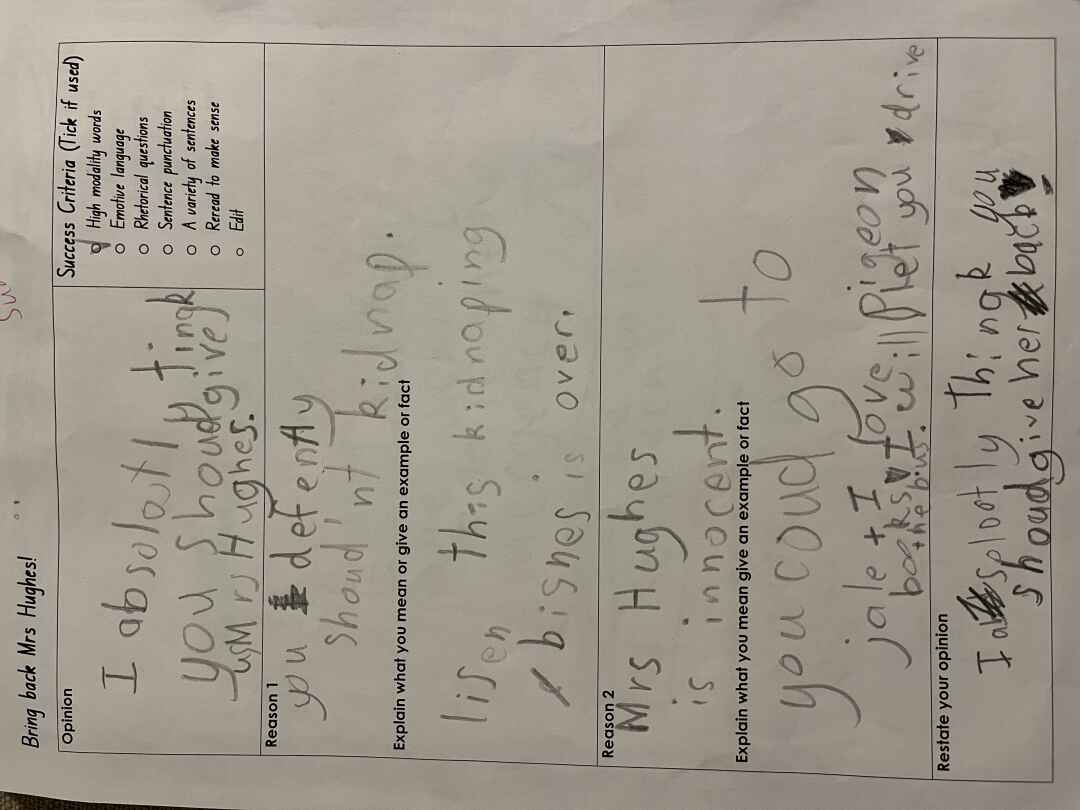 Bring back Mrs Hughes!
Opinion
I absolutly tingk
you shoud give
us Mrs Hughes.
Success Criteria (Tick if used)
High modality words
Emotive language
Rhetorical questions
Sentence punctuation
A variety of sentences
Reread to make sense
Edit
Reason 1
you defently
shoud'nt kidnap.
Explain what you mean or give an example or fact
lisen this kidnaping
bisnes is over.
Reason 2
Mrs Hughes
is innocent.
Explain what you mean give an example or fact
you coud go to
jale + I love Pigeon
books I will let you drive
the bus.
Restate your opinion
I absplootly thingk you
shoud give her back